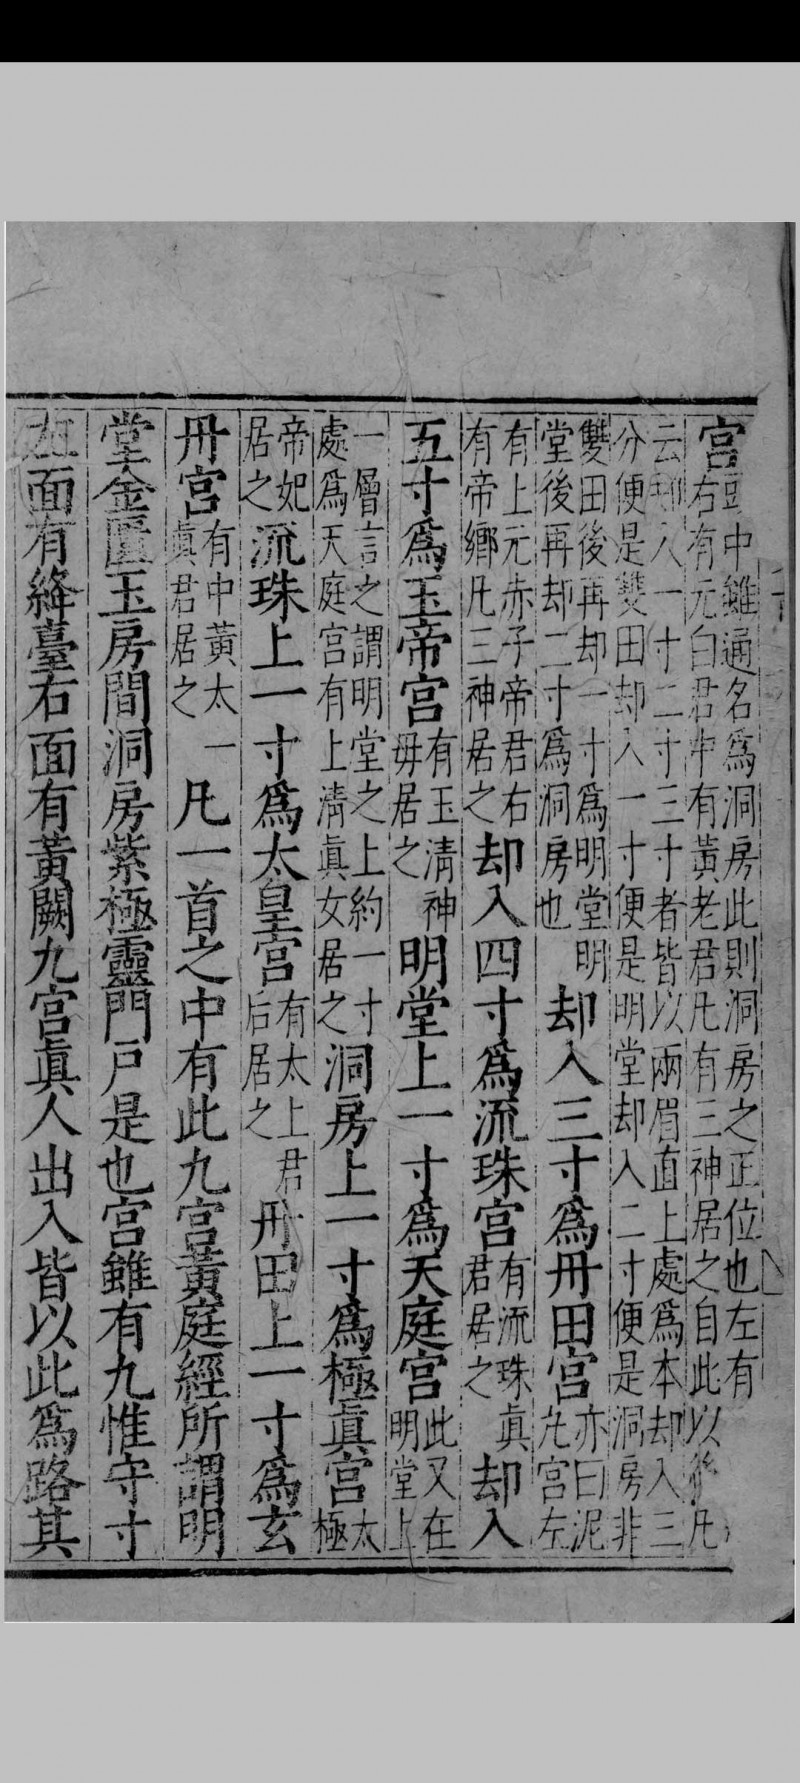 宮頭中雖通名爲洞房此則洞房之正位也左有右有元白君中有黃老君凡有三神居之自此以後凡
云却入一寸二寸三寸者皆以兩眉直上處爲本却入三分便是雙田却入一寸便是明堂却入二寸便是洞房非
雙田後再却一寸爲明堂明堂後再却二寸爲洞房也却入三寸爲丹田宮亦曰泥九宮左
有上元赤子帝君右有帝鄉凡三神居之却入四寸爲流珠宮有流珠眞君居之却入
五寸爲玉帝宮有玉清神毋居之明堂上一寸爲天庭宮此又在明堂上
一層言之謂明堂之上約一寸處爲天庭宮有上清眞女居之洞房上一寸爲極眞宮太極
帝妃居之流珠上一寸爲太皇宮有太上君后居之丹田上一寸爲玄
丹宮有中黃太一眞君居之凡一首之中有此九宮黃庭經所謂明
堂金匱玉房間洞房紫極靈門戶是也宮雖有九惟守寸
左面有絳臺右面有黃闕九宮眞人出入皆以此爲路其